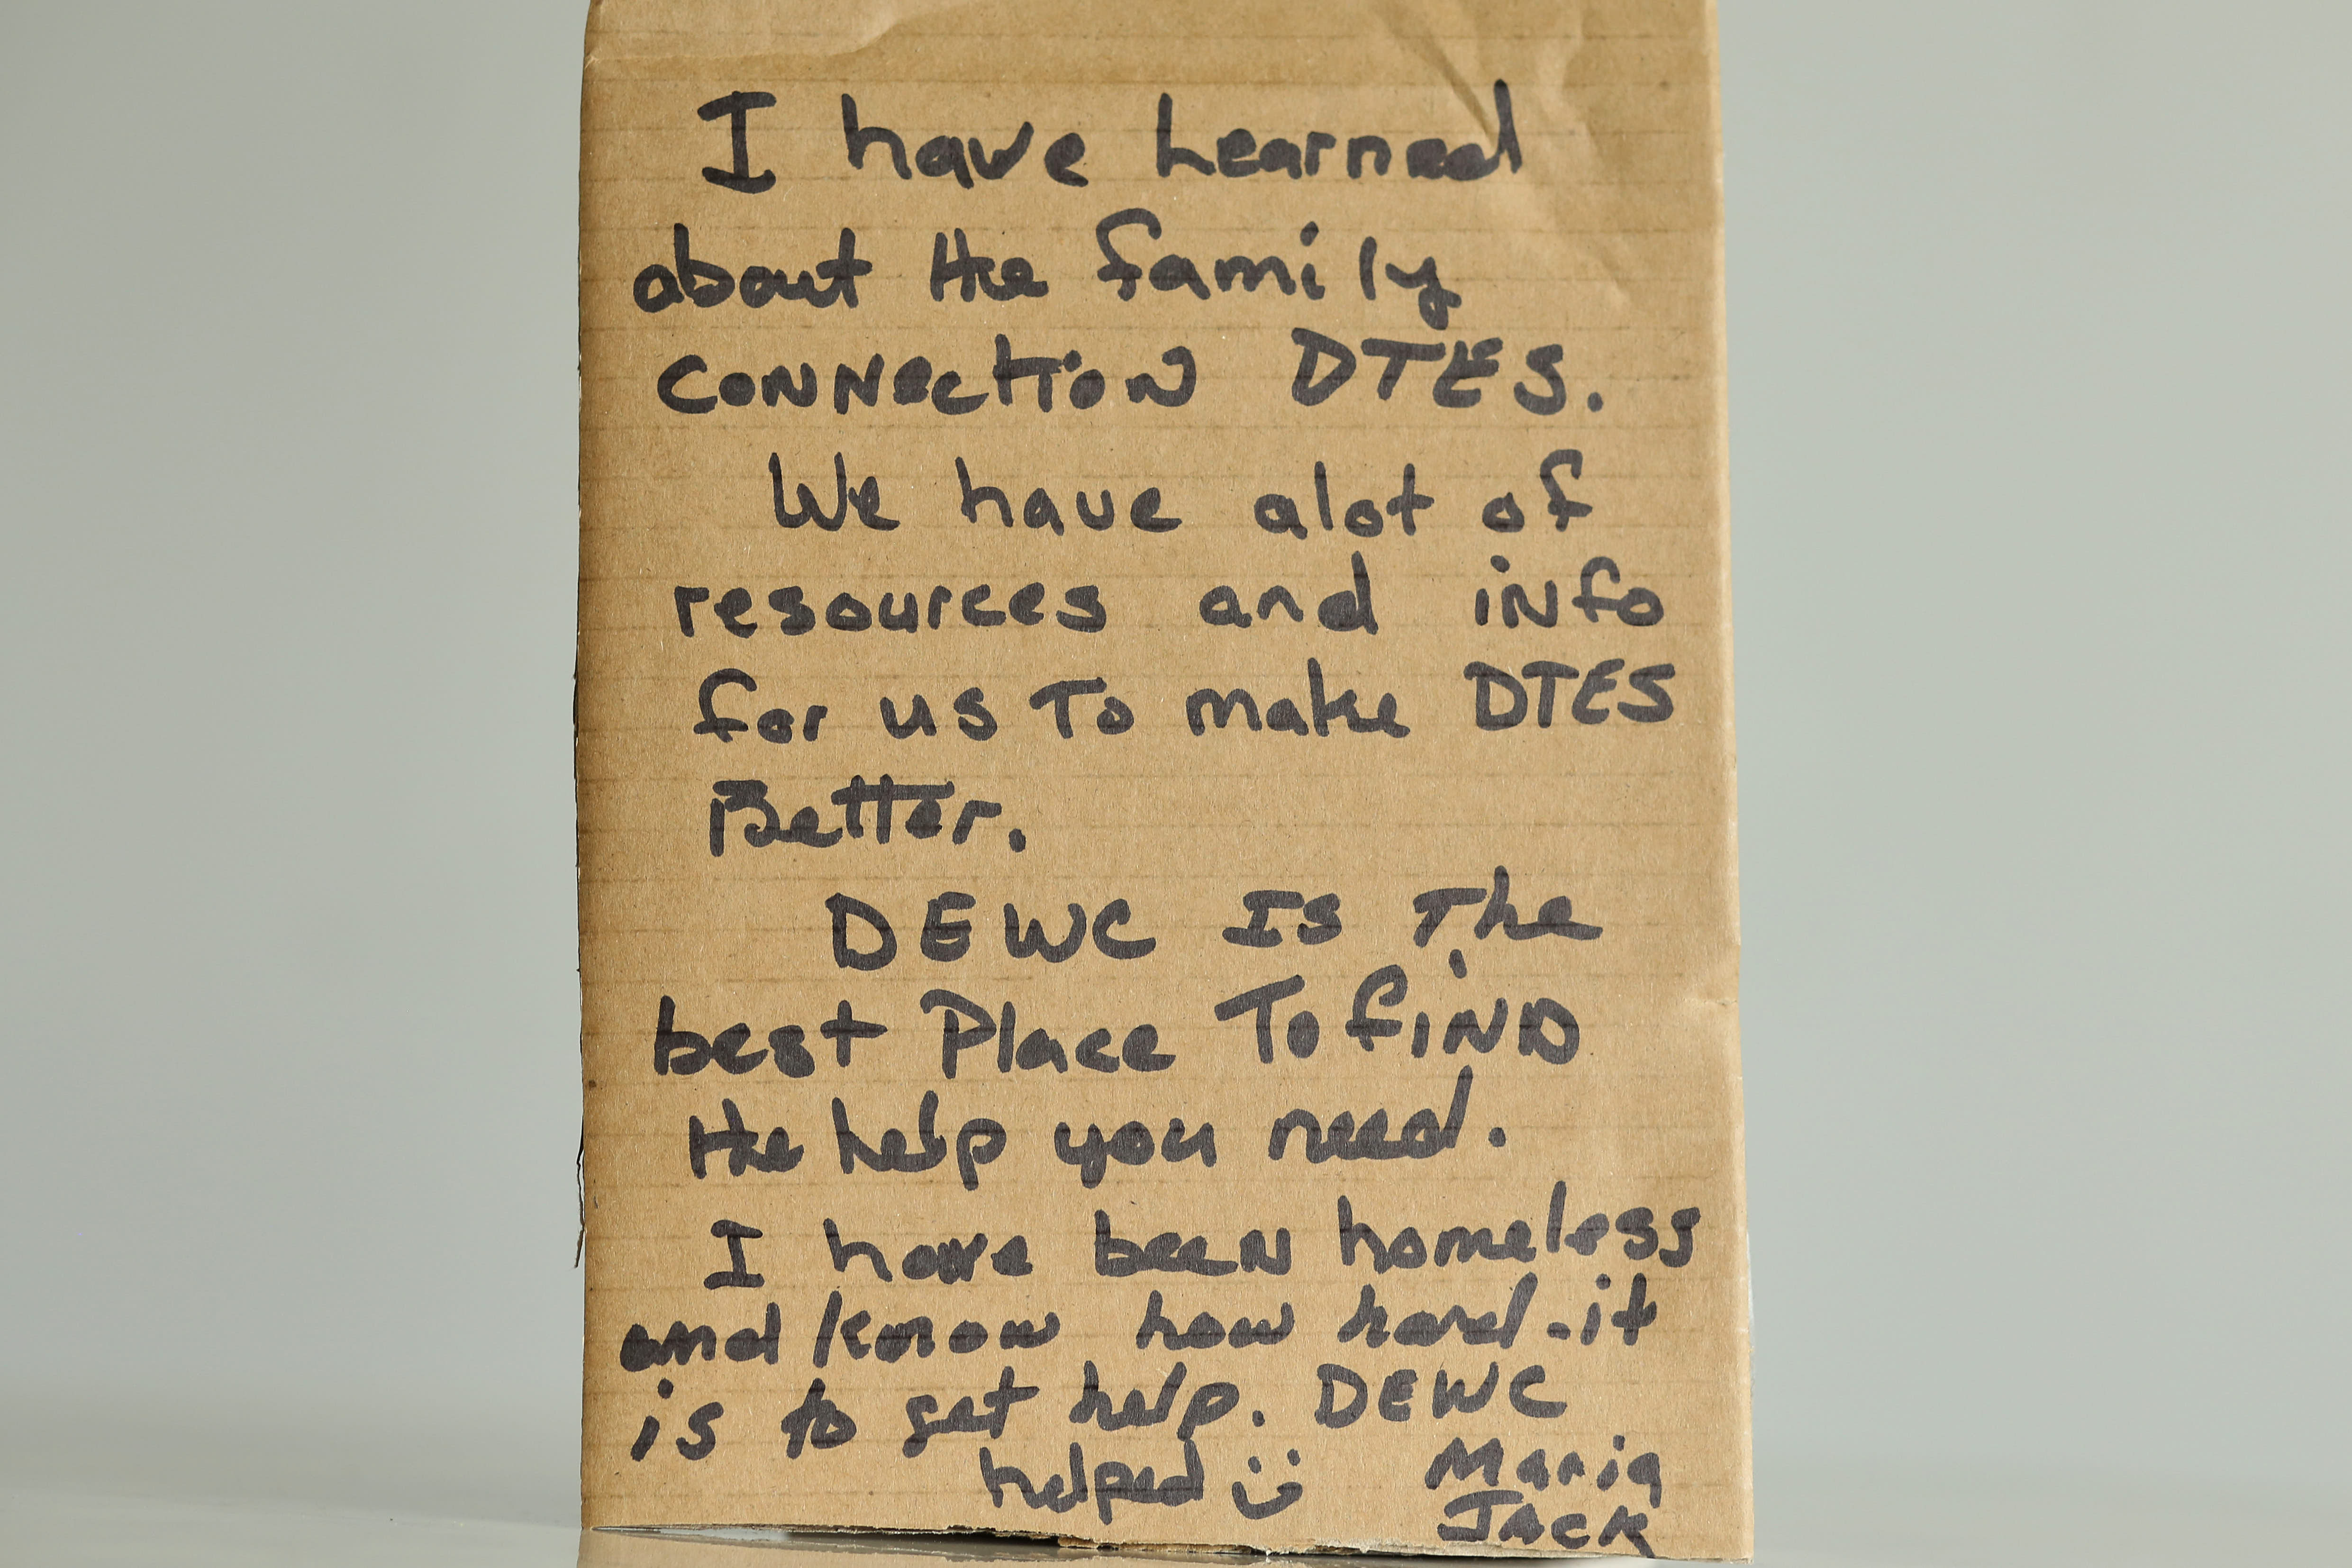 I have Learned
about the family
CONNection DTES.
We have alot of
resources and iNfo
for us To make DTES
Better.
DEWC IS The
best Place To fiND
the help you need.
I have beeN homeless
and know how hard-it
is to get help. DEWC
helped :) Maria
Jack